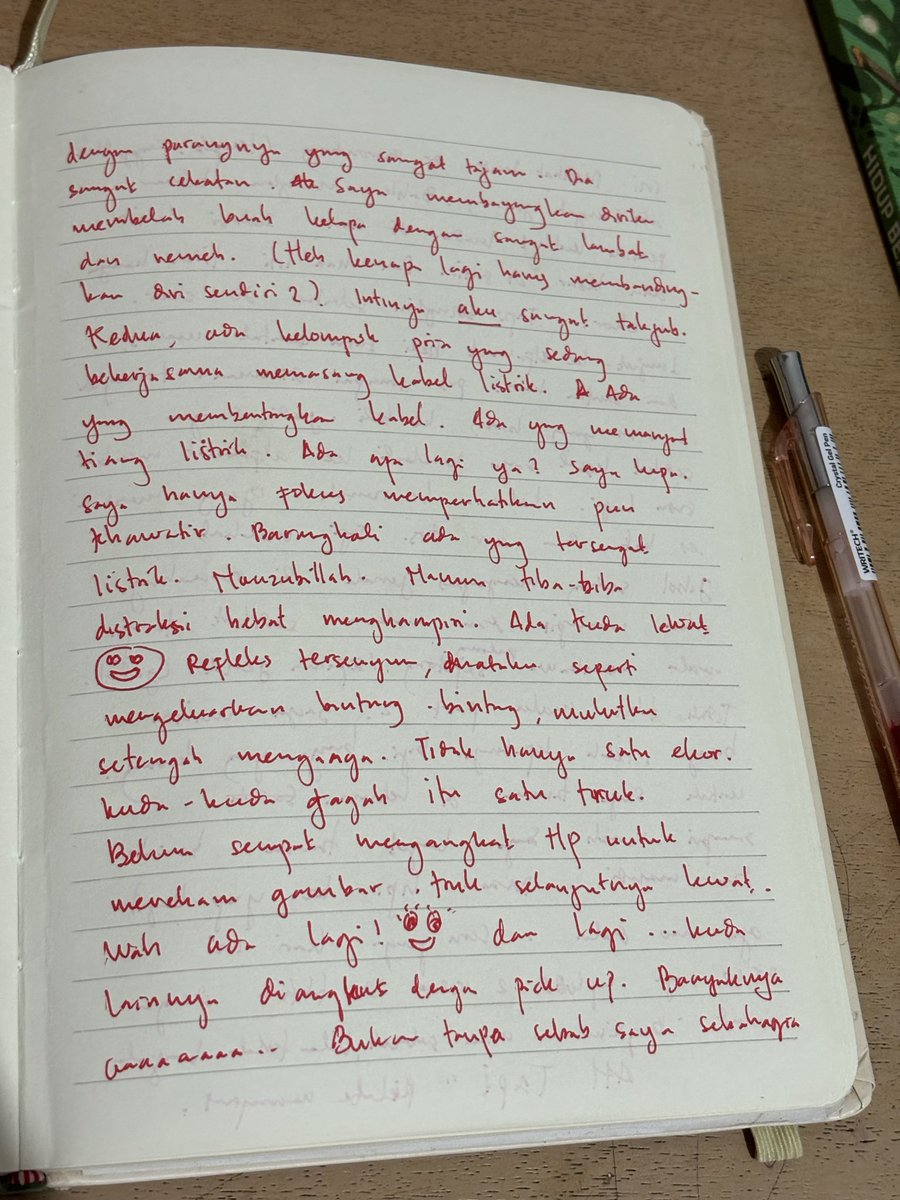 dengan parangnya yang sangat tajam. Dia
sangat cekatan. Saya membayangkan diriku
membelah buah kelapa dengan sangat lambat
dan remeh. (Heh kenapa lagi harus membanding-
kan diri sendiri?). Intinya aku sangat takjub.
Kedua, ada kelompok pria yang sedang
bekerjasama memasang kabel listrik. Ada
yang membentangkan kabel. Ada yang memanjat
tiang listrik. Ada apa lagi ya? Saya lupa.
Saya hanya fokus memperhatikan pun
khawatir. Barangkali ada yang tersengat
listrik. Nauzubillah. Namun tiba-tiba
distraksi hebat menghampiri. Ada kuda lewat
Repleks tersenyum, mataku seperti
mengeluarkan bintang-bintang, mulutku
setengah menganga. Tidak hanya satu ekor.
kuda-kuda gagah itu satu truk.
Belum sempat mengangkat Hp untuk
merekam gambar. truk selanjutnya lewat.
Wah ada lagi! dan lagi ... kuda
lainnya diangkut dengan pick up. Banyaknya
aaaaaaa... Bukan tanpa sebab saya sebahagia
WRITECH® Crystal Gel Pen
HIDUP BE